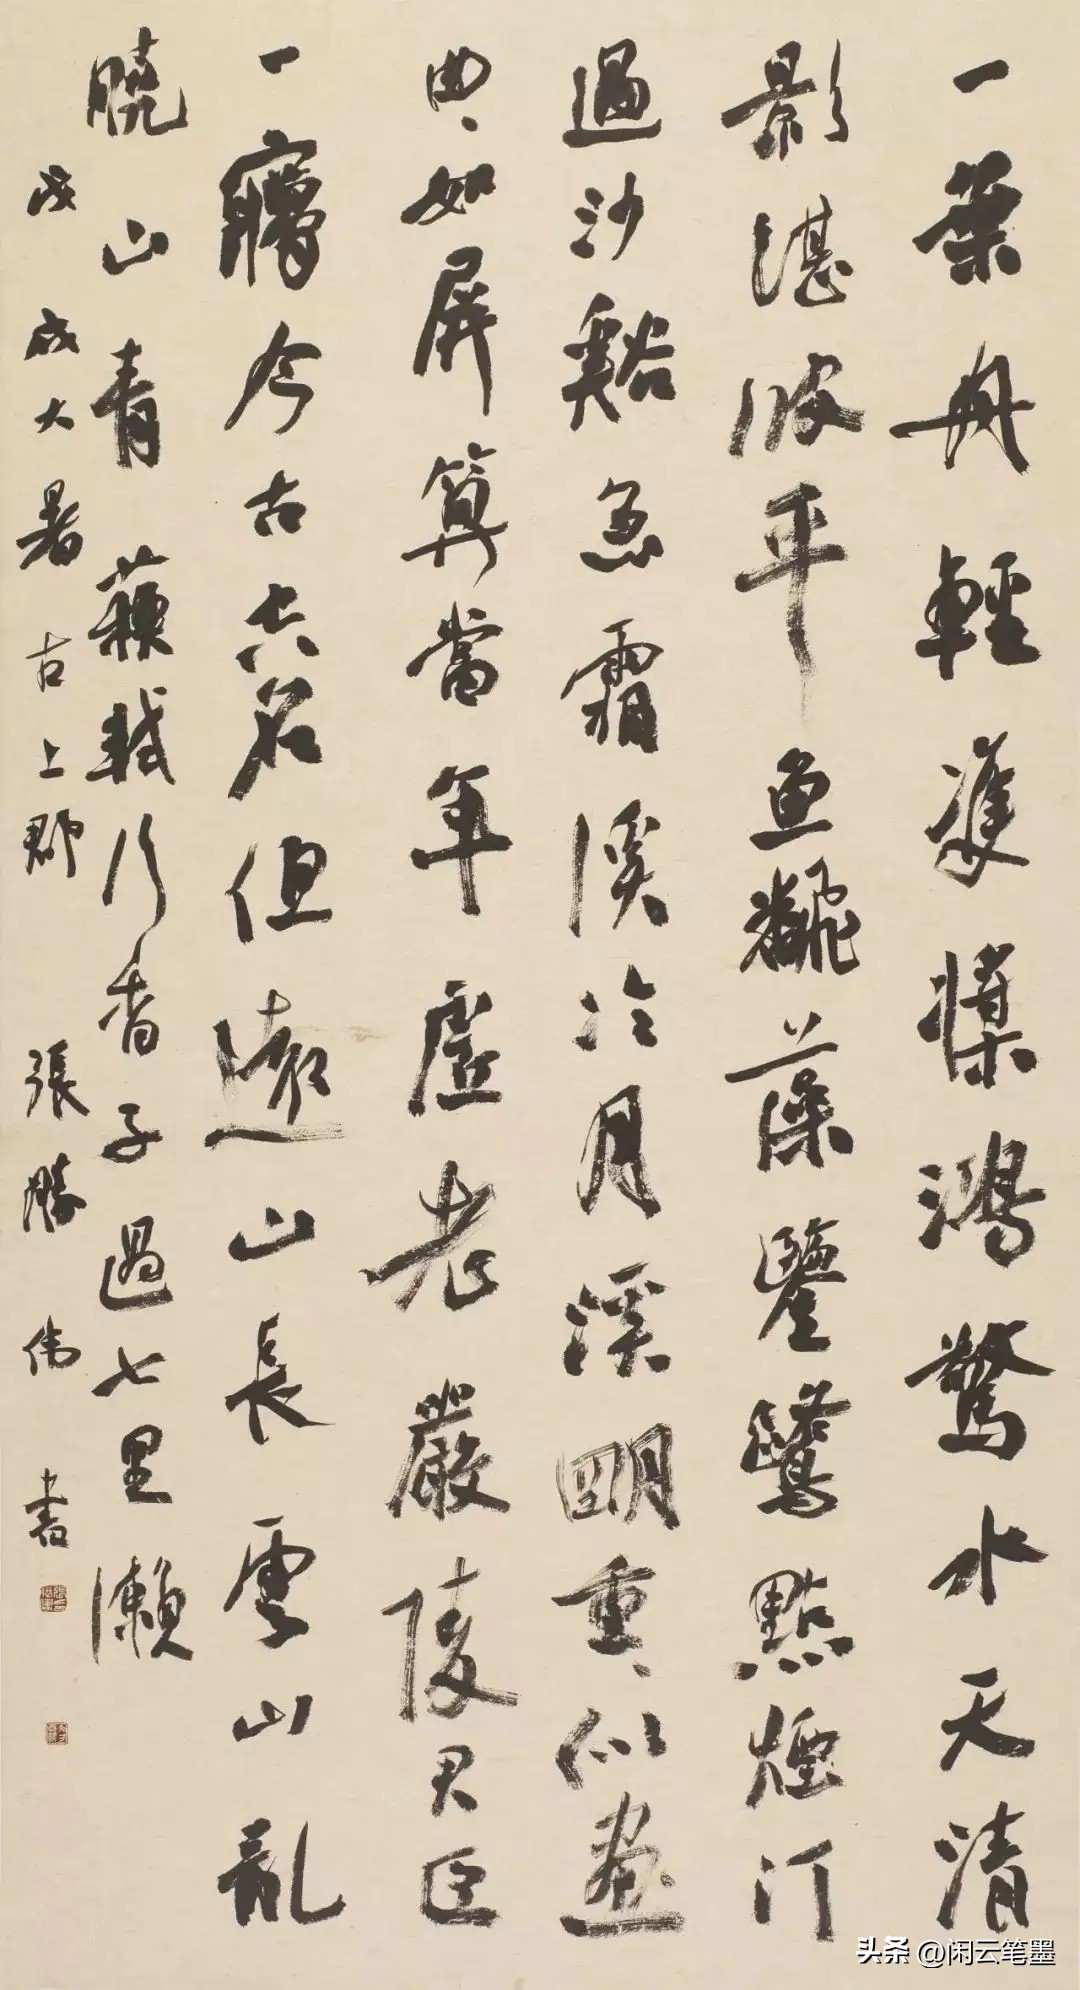 一葉舟輕雙槳鴻驚水天清
影湛波平魚飜藻鑒鷺點煙汀
過沙谿急霜溪冷月溪明重、似畫
曲、如屏算當年虛老嚴陵君臣
一㝱今古空名但遠山長雲山亂
曉山青 蘇軾行香子過七里瀨
戊戌大暑 古上郡 張勝伟書
头条 @闲云笔墨